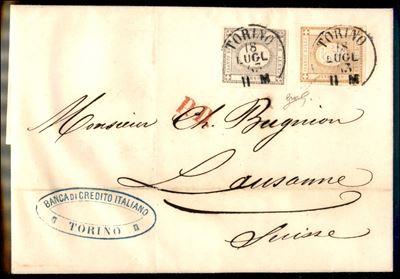 TORINO
18
LUGL
63
11 M
TORINO
18
LUGL
63
11 M
P.D.
Monsieur Ch. Bugnion
Lausanne
Suisse
BANCA DI CREDITO ITALIANO
TORINO